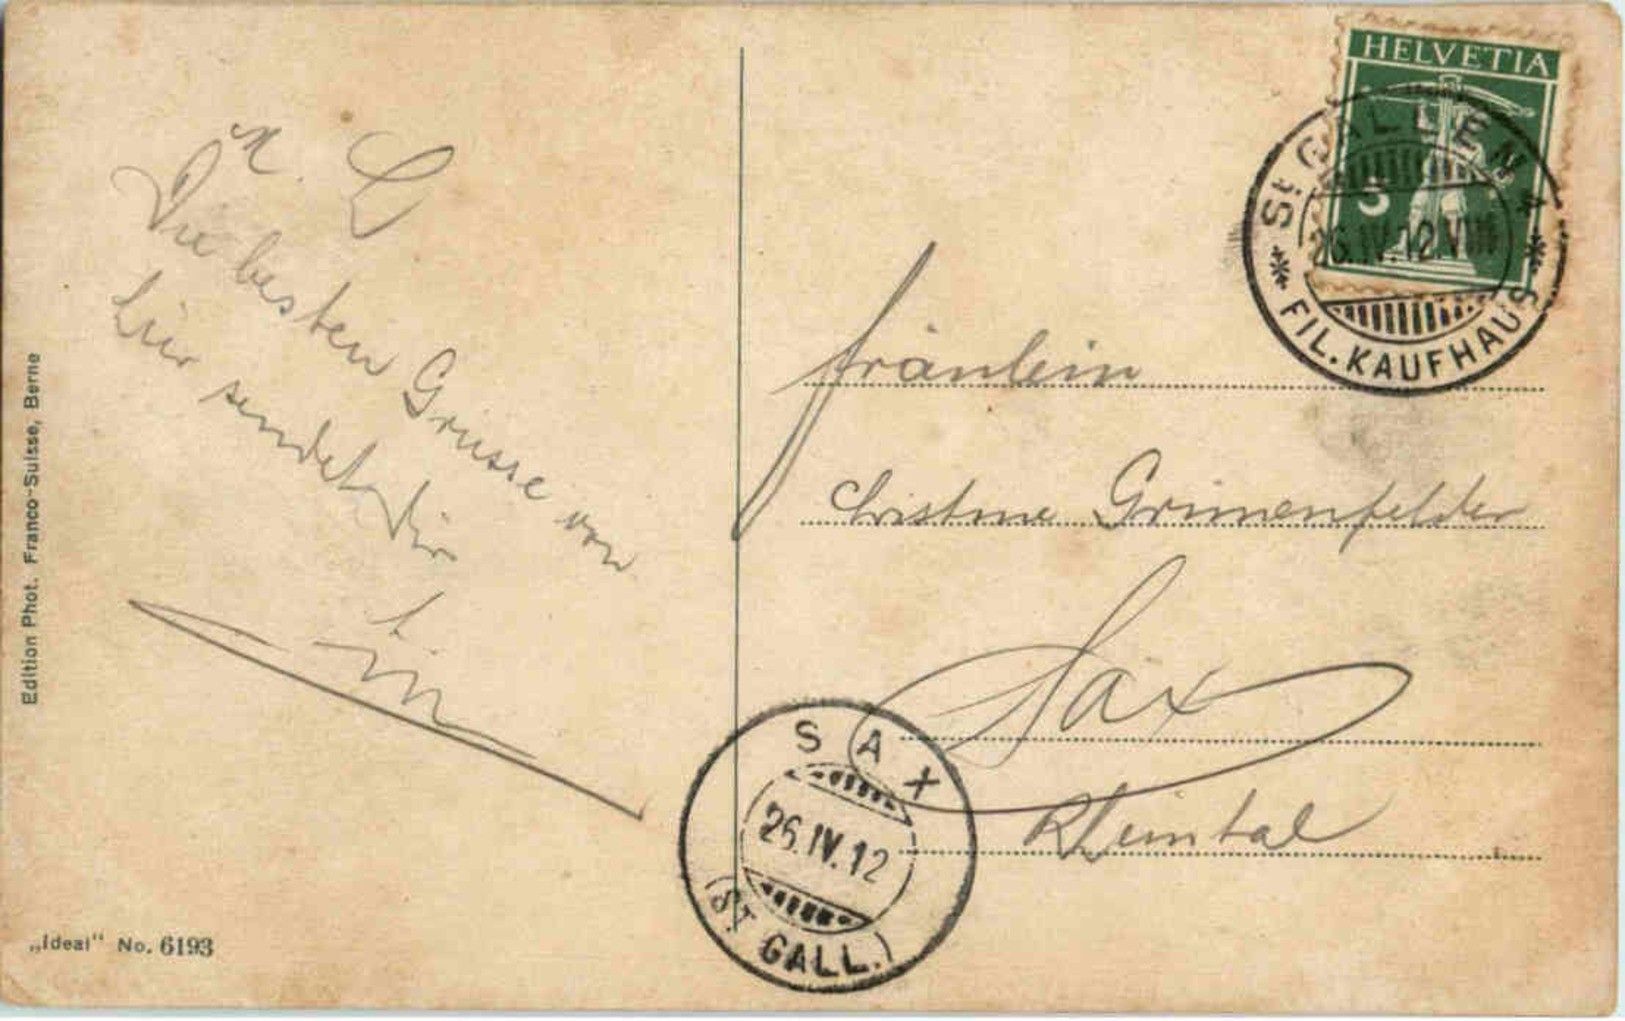 M. L
Die besten Grüsse von
hier sendet dir
HELVETIA
5
St. GALLEN
26.IV.12.VIII
FIL. KAUFHAUS
Fräulein
Christine Grünenfelder
Sax
Rheintal
SAX
26.IV.12
(ST. GALL.)
Edition Phot. Franco-Suisse, Berne
„Ideal" No. 6193